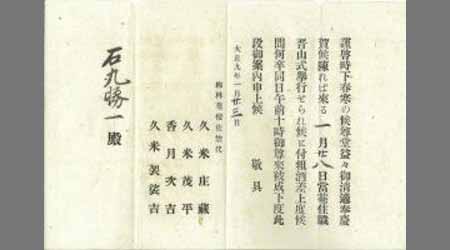 謹啓時下春寒の候尊堂益々御清適奉慶
賀候陳れば來る一月廿八日當菴住職
晋山式擧行せられ候に付粗酒差上度候
間何卒同日午前十時御尊來被成下度此
段御案内申上候　敬具
大正九年一月廿三日
梅林菴檀徒惣代
久米庄藏
久米茂平
香月次吉
久米袈裟吉
石丸勝一殿